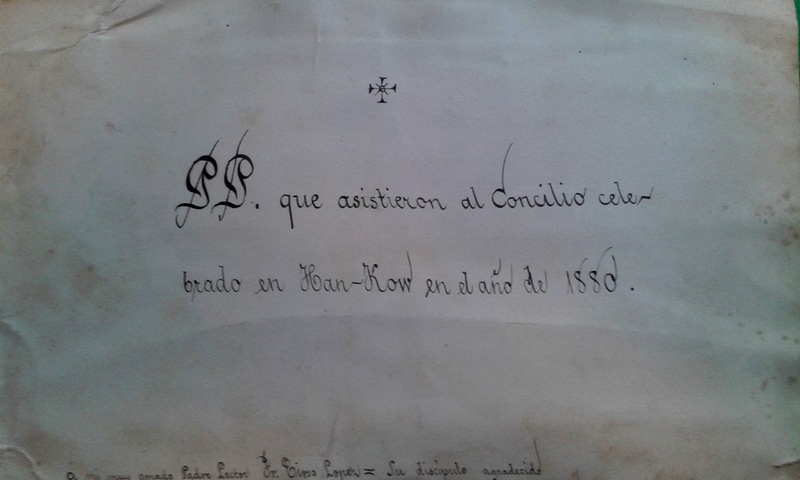 PP. que asistieron al Concilio cele-
brado en Han-Kow en el año de 1880.
A mi muy amado Padre Lector Fr. Tirso Lopez = Su discípulo agradecido